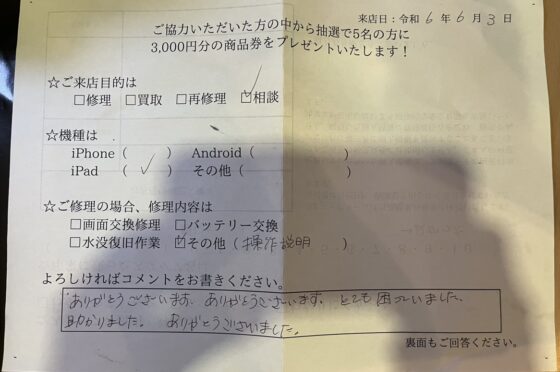 来店日：令和 6 年 6 月 3 日
ご協力いただいた方の中から抽選で5名の方に
3,000円分の商品券をプレゼントいたします！
☆ご来店目的は
□修理 □買取 □再修理 ☑相談
☆機種は
iPhone（ ） Android（ ）
iPad （ ✓ ） その他（ ）
☆ご修理の場合、修理内容は
□画面交換修理 □バッテリー交換
□水没復旧作業 ☑その他（操作説明 ）
よろしければコメントをお書きください。
ありがとうございます。ありがとうございます。とても困っていました。
助かりました。ありがとうございました。
裏面もご回答ください。